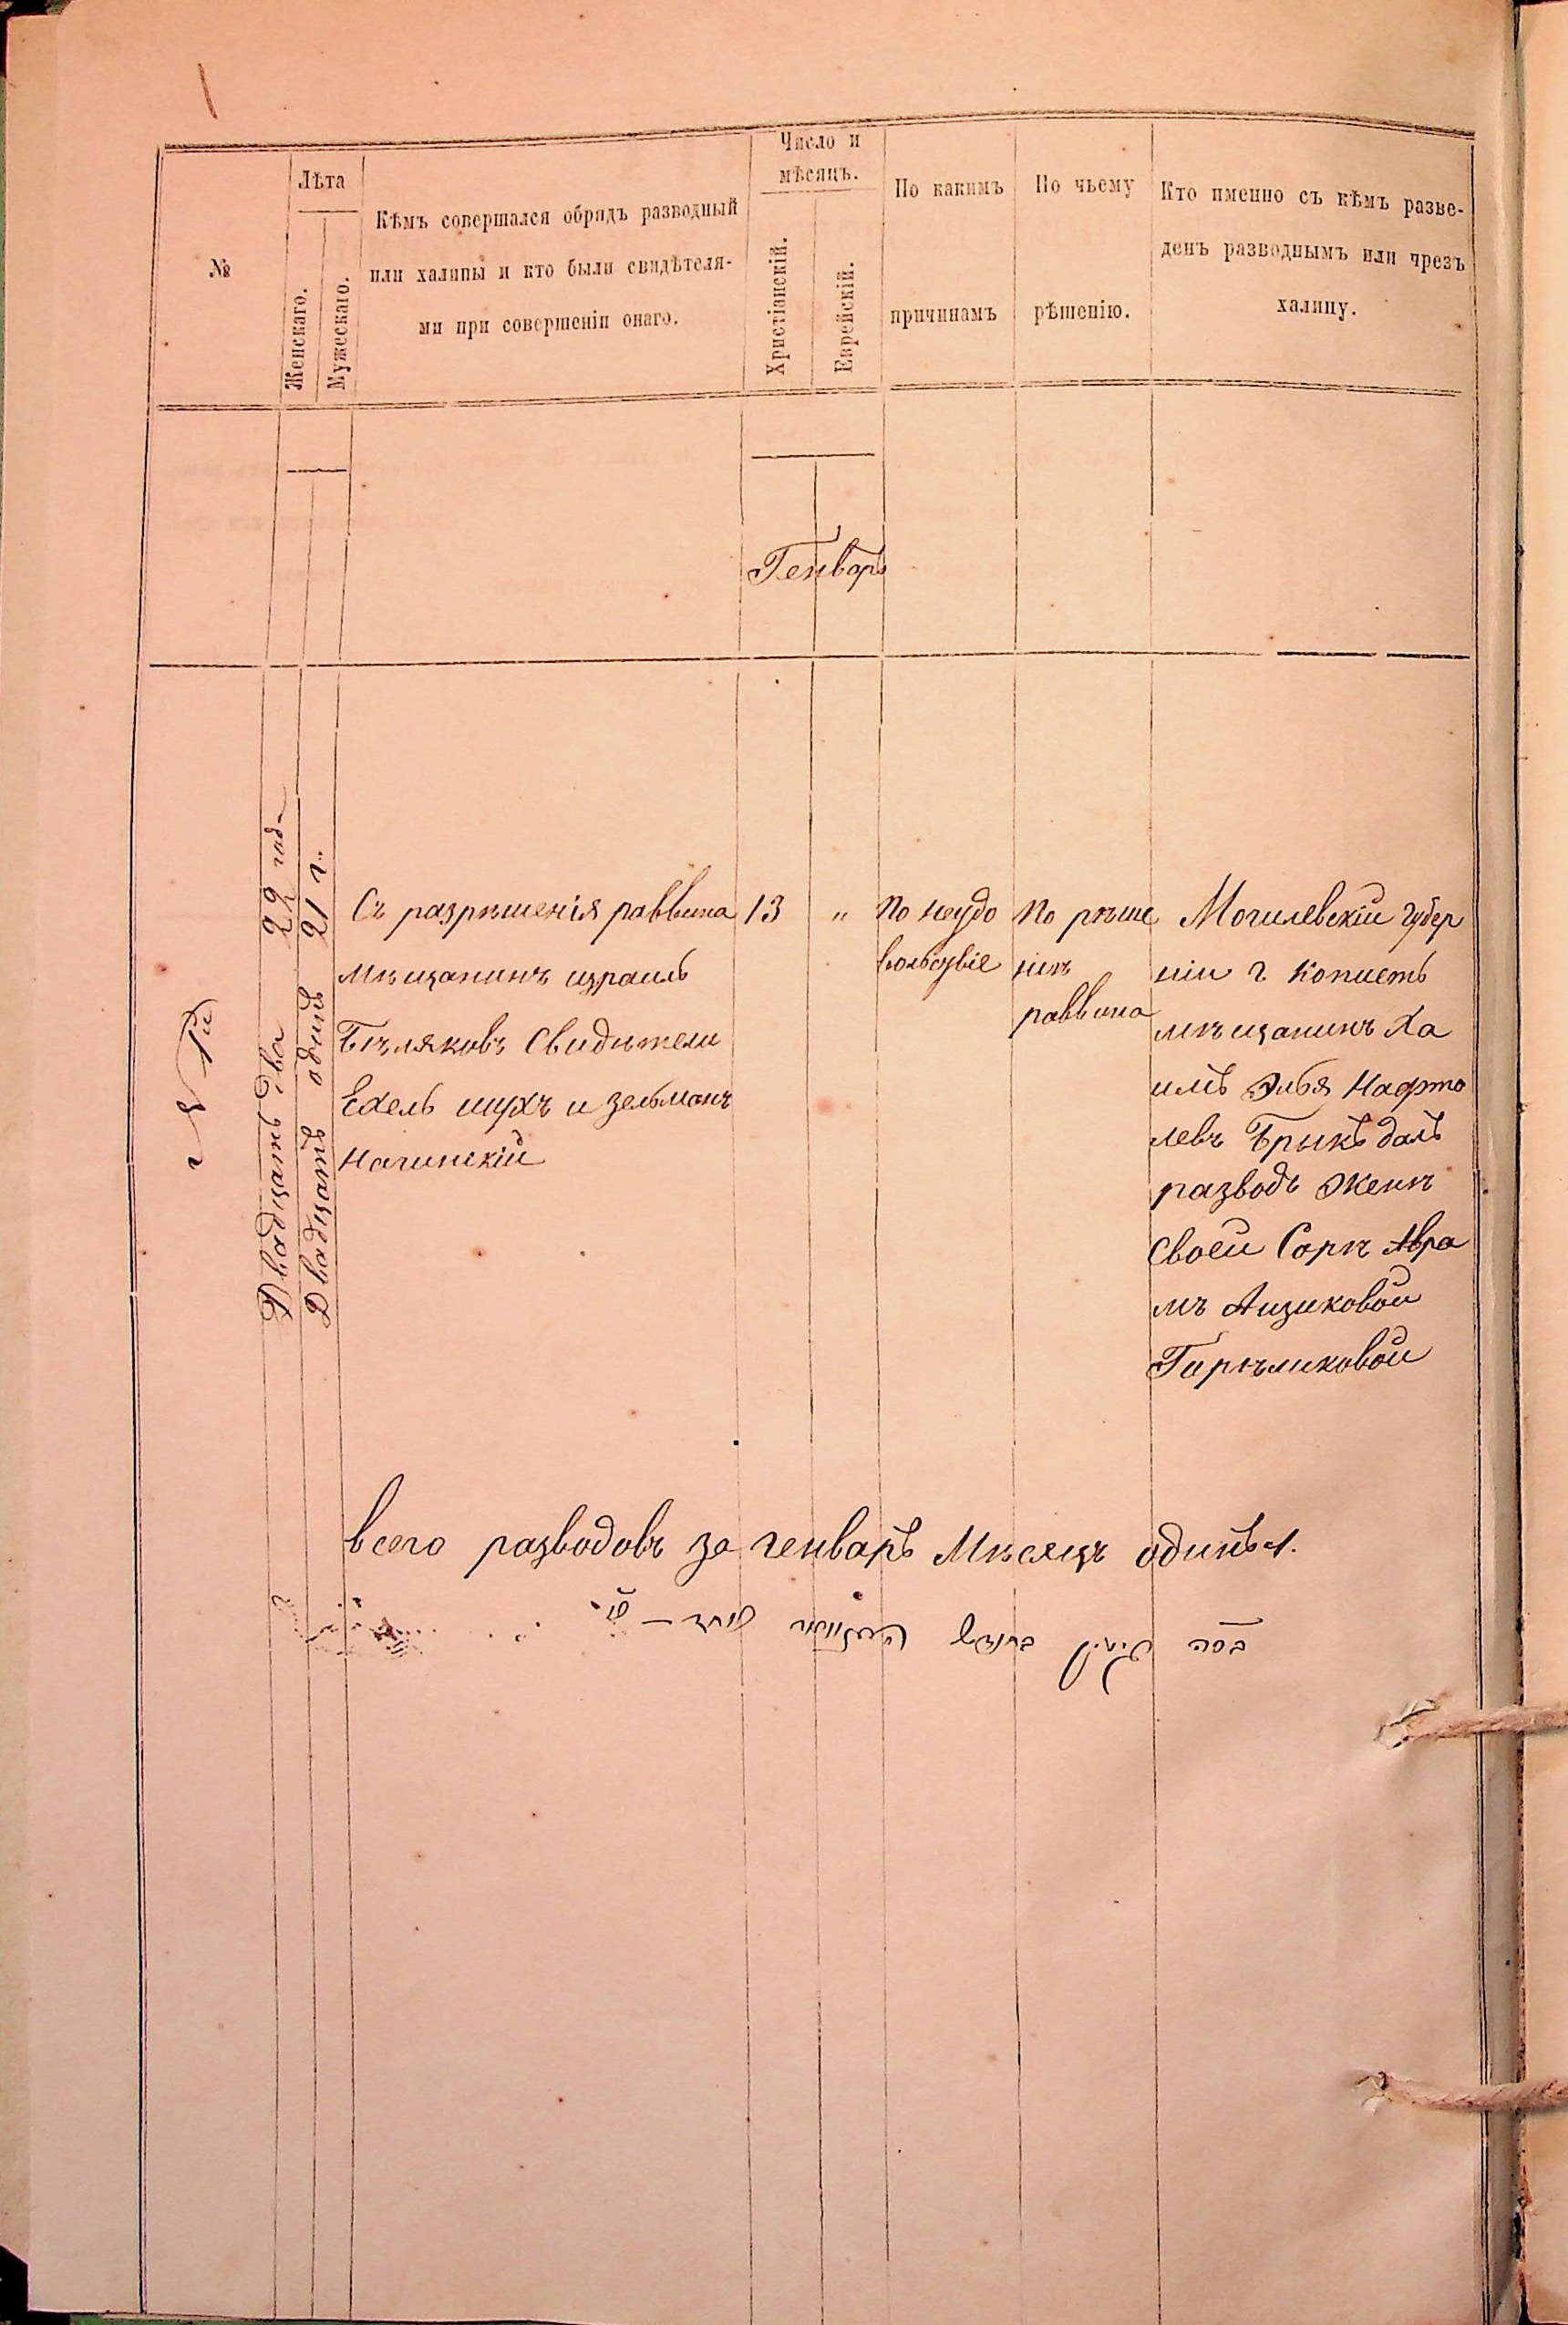 №
Лѣта
Женскаго.
Мужескаго.
Кѣмъ совершался обрядъ разводный
или халицы и кто были свидѣтеля-
ми при совершеніи онаго.
Число и
мѣсяцъ.
Христіанскій.
Еврейскій.
По какимъ
причинамъ
По чьему
рѣшенію.
Кто именно съ кѣмъ разве-
денъ разводнымъ или чрезъ
халицу.
Генварь
Двадцать два 22 год
Двадцать одинъ 21 г.
Съ разрѣшенія раввина
мѣщанинъ израиль
Бѣляковъ Свидѣтели
Ехель шухъ и зельманъ
13
"
По неудо
вольствіе
По рѣше
нію
раввина
Могилевскій губер
ніи г Копысть
мѣщанинъ Ха
имъ Элья Нафто
левъ далъ
разводъ женѣ
своей Сорѣ Авра
мъ Аизиковой
всего разводовъ за генварь Мѣсяцъ одинъ 1.